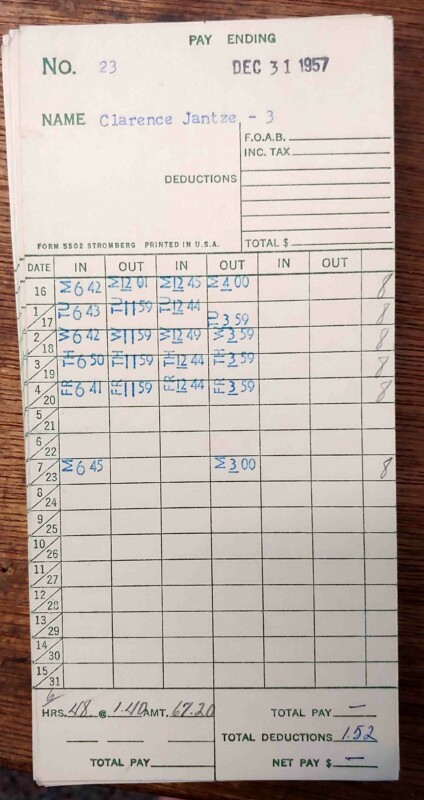 PAY ENDING
No. 23 DEC 31 1957
NAME Clarence Jantze - 3
F.O.A.B.
INC. TAX
DEDUCTIONS
FORM 5502 STROMBERG PRINTED IN U.S.A. TOTAL $
DATE IN OUT IN OUT IN OUT
16 M 6 42 M 12 01 M 12 45 M 4 00 8
1/17 TU 6 43 TU 11 59 TU 12 44 TU 3 59 8
2/18 W 6 42 W 11 59 W 12 49 W 3 59 8
3/19 TH 6 50 TH 11 59 TH 12 44 TH 3 59 8
4/20 FR 6 41 FR 11 59 FR 12 44 FR 3 59 8
5/21
6/22
7/23 M 6 45 M 3 00 8
8/24
9/25
10/26
11/27
12/28
13/29
14/30
15/31
6
HRS. 48 @ 1.40 AMT. 67.20 TOTAL PAY –
TOTAL DEDUCTIONS 1.52
TOTAL PAY NET PAY $ –